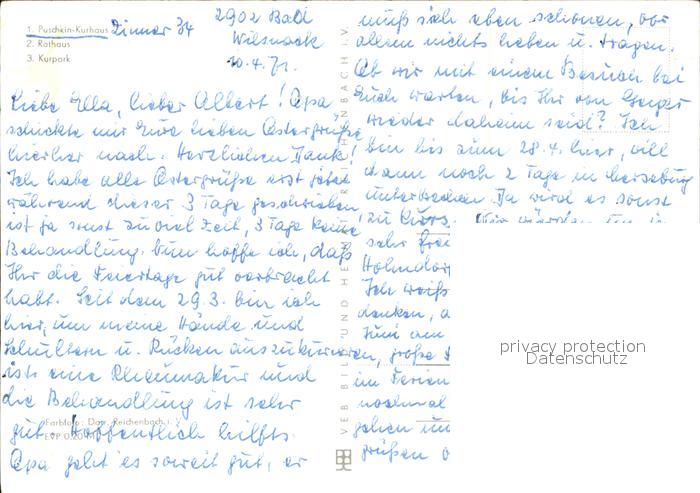 1. Puschkin-Kurhaus Zimmer 34
2. Rathaus
3. Kurpark
2902 Bad
Wilsnack
10.4.71.
Liebe Ella, lieber Albert! Opa
schickte mir Eure lieben Ostergrüße
hierher nach. Herzlichen Dank!
Ich habe alle Ostergrüße erst jetzt
während dieser 3 Tage geschrieben,
ist ja sonst zuviel Zeit, 3 Tage keine
Behandlung. Nun hoffe ich, daß
Ihr die Feiertage gut verbracht
habt. Seit dem 29.3. bin ich
hier, um meine Hände und
Schultern u. Rücken auszukurieren,
ist eine Rheumakur und
die Behandlung ist sehr
gut. Hoffentlich hilfts.
Opa geht es soweit gut, er
Farbfoto: Darr, Reichenbach i. V.
EVP 0,20
VEB BILD UND HEIMAT REICHENBACH I. V.
muß sich eben schonen, vor
allem nichts heben u. tragen.
Ob wir mit einem Besuch bei
Euch warten, bis Ihr von
wieder daheim seid? Ich
bin bis zum 28.4. hier, will
dann noch 2 Tage in Merseburg
unterbrechen. Da wird es sonst
zu kurz. Wir würden uns
sehr
Ich weiß
denken,
Juni am
große
im Ferien
nochmal
gehen
grüßen
privacy protection
Datenschutz